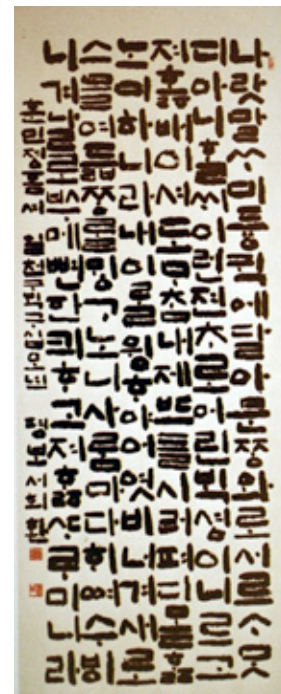 나랏말ᄊᆞ미듕귁에달아문ᄍᆞᆼ와로서르ᄉᆞᄆᆞᆺ
디아니ᄒᆞᆯᄊᆡ이런젼ᄎᆞ로어린ᄇᆡᆨ셩이니르고
져호ᇙ배이셔도ᄆᆞᄎᆞᆷ내제ᄠᅳ들시러펴디몯ᄒᆞᇙ
노미하니라내이ᄅᆞᆯ윙ᄒᆞ야어엿비너겨새로
스믈여듧ᄍᆞᆼᄅᆞᆯᄆᆡᇰᄀᆞ노니사ᄅᆞᆷ마다ᄒᆡᅇᅧ수ᄫᅵ
니겨날로ᄡᅮ메뼌한킈ᄒᆞ고져ᄒᆞᇙᄯᆞᄅᆞ미니라
훈민정음 평보 서희환